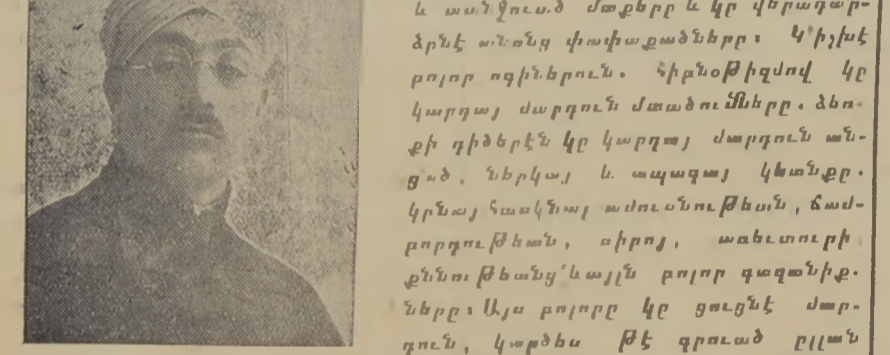 և տանջուած մտքերը և կը վերադար-
ձընէ անոնց փափաքածները։ Կ'իշխէ
բոլոր ոգիներուն. Հիբնօթիզմով կը
կարդայ մարդուն մտածումները. ձեռ-
քի գիծերէն կը կարդայ մարդուն ան-
ցած, ներկայ և ապագայ կեանքը.
կրնայ հասկնալ ամուսնութեան, ճամ-
բորդութեան, սիրոյ, առեւտուրի
քննութեանց եւայլն բոլոր գաղտնիք-
ները։ Այս բոլորը կը ցուցնէ մար-
դուն, կարծես թէ գրուած ըլլան